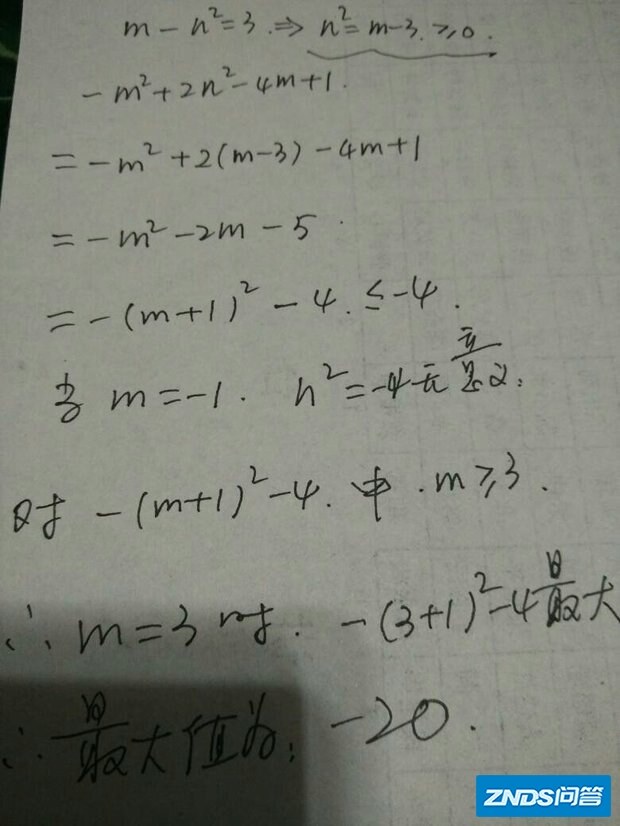 m - n² = 3. ⇒ n² = m-3. ≥0.
- m² + 2n² - 4m + 1.
= -m² + 2(m-3) - 4m + 1
= -m² - 2m - 5.
= -(m+1)² - 4. ≤ -4.
当 m = -1. n² = -4 无意义.
时 -(m+1)² - 4. 中. m ≥ 3.
∴ m = 3 时. -(3+1)² - 4 最大
∴ 最大值为: -20.
ZNDS问答